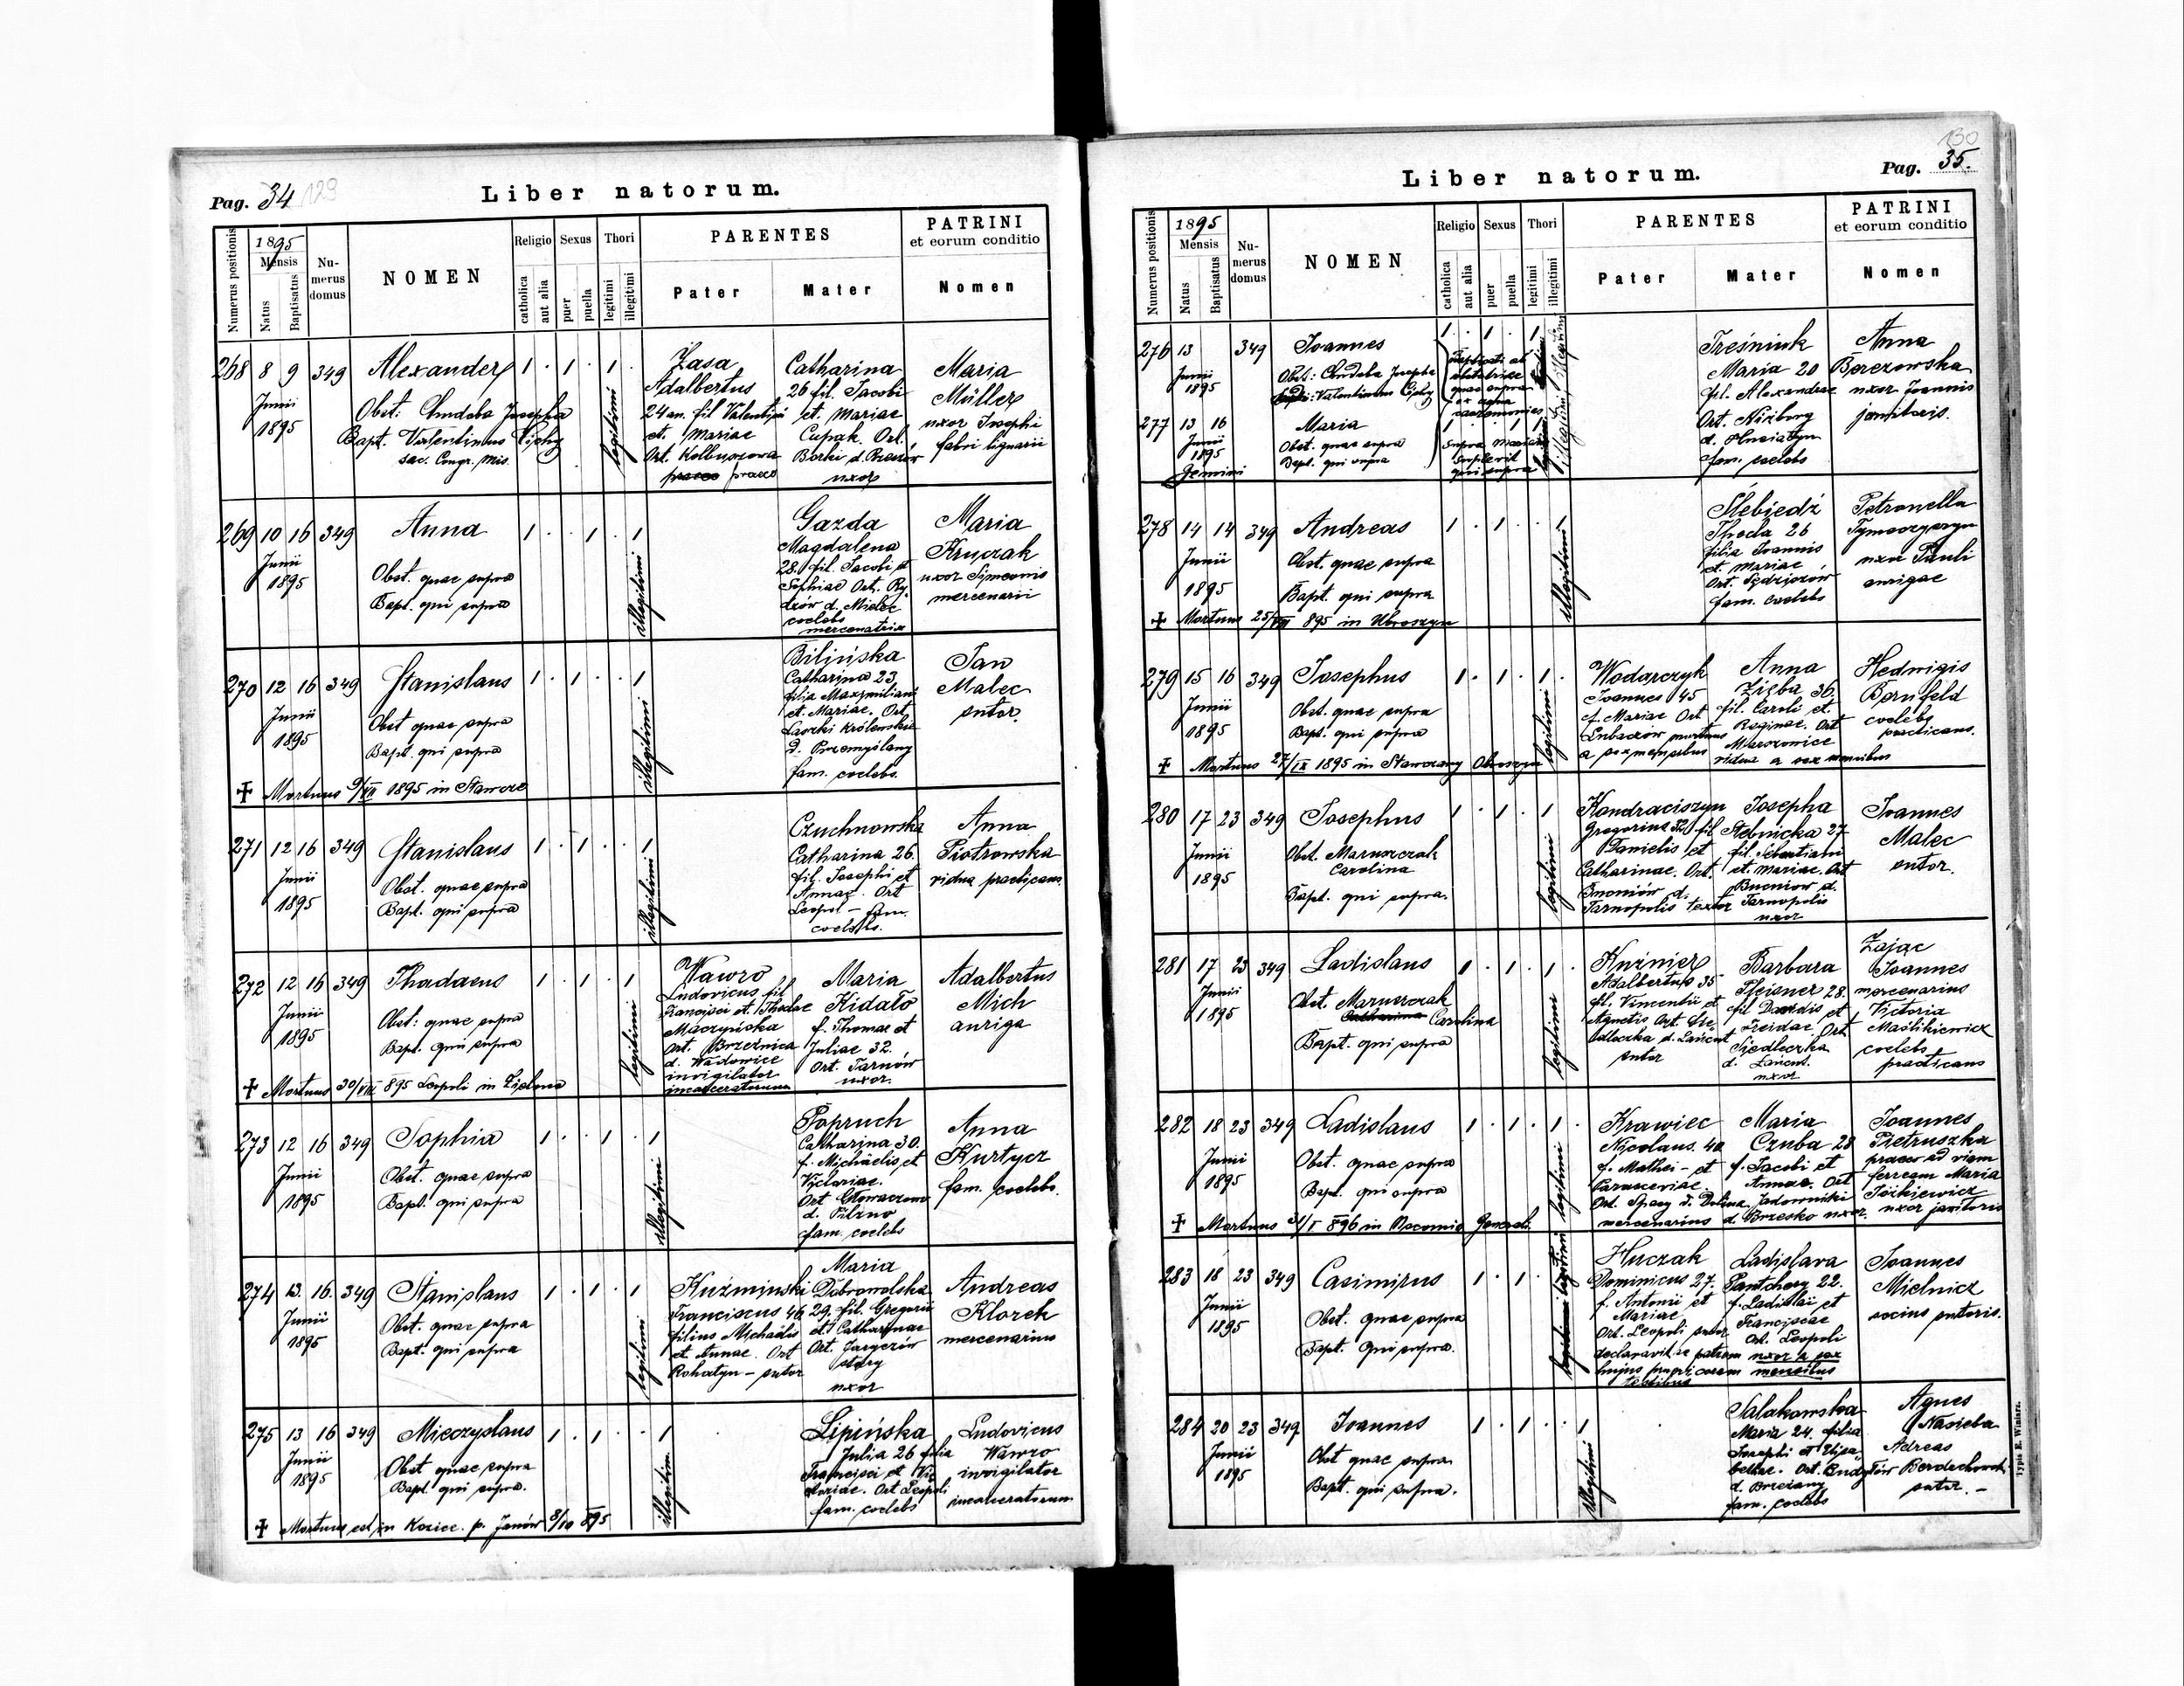 Pag. 34 129
Liber natorum.
Numerus positionis
1895
Mensis
Natus
Baptisatus
Numerus domus
NOMEN
Religio
catholica
aut alia
Sexus
puer
puella
Thori
legitimi
illegitimi
PARENTES
Pater
Mater
PATRINI
et eorum conditio
Nomen
268 8 9 349 Alexander 1 . 1 . 1 .
Junii
1895
Obst: Chudoba Josepha
Bapt. Valentinus Cichy
sac. Congr. Mis.
legitimi
Zasa
Adalbertus
24 an. fil Valentini
et Mariae
Ort. Kolbuszowa
praeco
Catharina
26 fil. Jacobi
et Mariae
Cupak. Ort.
Borki d. Rzeszów
uxor
Maria
Müller
uxor Josephi
fabri lignarii
269 10 16 349 Anna 1 . . 1 . 1
Junii
1895
Obst. quae supra
Bapt. qui supra
illegitimi
Gazda
Magdalena
28. fil. Jacobi et
Sophiae Ort. Ry-
dzów d. Mielec
coelebs
mercenatrix
Maria
Kruczak
uxor Simeonis
mercenarii
270 12 16 349 Stanislaus 1 . 1 . . 1
Junii
1895
Obst quae supra
Bapt. qui supra
illegitimi
Bilińska
Catharina 23,
filia Maximiliani
et Mariae. Ort
Laszki królewskie
d. Przemyślany
fam. coelebs.
Jan
Malec
sutor.
✝ Mortuus 9/VII 1895 in Stawcze
271 12 16 349 Stanislaus 1 . 1 . . 1
Junii
1895
Obst. quae supra
Bapt. qui supra
illegitimi
Czuchnowska
Catharina 26.
fil. Josephi et
Annae. Ort
Leopol – fam.
coelebs.
Anna
Piotrowska
vidua practicans.
272 12 16 349 Thadaeus 1 . 1 . 1
Junii
1895
Obst: quae supra
Bapt. qui supra
legitimi
Wawro
Ludovicus fil
Francisci et Theclae
Maczyńska
ort. Brzeźnica
d. Wadowice
invigilator
incarceratorum
Maria
Kidało
f. Thomae et
Juliae 32.
Ort. Tarnów
uxor.
Adalbertus
Mich
auriga
✝ Mortuus 30/VII 895 Leopoli in Zielona
273 12 16 349 Sophia 1 . . 1 . 1
Junii
1895
Obst. quae supra
Bapt. qui supra
illegitimi
Popruch
Catharina 30.
f. Michaelis et
Victoriae.
Ort Głowaczowa
d. Pilzno
fam. coelebs
Anna
Kurtycz
fam. coelebs.
274 13. 16. 349 Stanislaus 1 . 1 . 1
Junii
1895
Obst. quae supra
Bapt. qui supra
legitimi
Kuźminski
Franciscus 46
filius Michaelis
et Annae. Ort
Rohatyn – sutor
Maria
Dobrowolska
29, fil. Gregorii
et Catharinae
Ort. Jaryczów
stary
uxor
Andreas
Klorek
mercenarius
275 13 16 349 Mieczyslaus 1 . 1 . . 1
Junii
1895
Obst quae supra
Bapt. qui supra.
illegitim
Lipińska
Julia 26 filia
Francisci et Vic
toriae. Ort Leopoli
fam. coelebs
Ludovicus
Wawro
invigilator
incarceratorum
✝ Mortuus est in Kozice. p. Janów 8/10 895
130
Pag. 35.
Liber natorum.
Numerus positionis
1895
Mensis
Natus
Baptisatus
Numerus domus
NOMEN
Religio
catholica
aut alia
Sexus
puer
puella
Thori
legitimi
illegitimi
PARENTES
Pater
Mater
PATRINI
et eorum conditio
Nomen
276 13 349 Joannes 1 . 1 . 1
Junii
1895
Obst: Chudoba Josepha
Valentinus Cichy
obstetrice
quae supra
ex aqua
caeremonies
Treśniuk
Maria 20
fil. Alexandrae
Ort. Niżborg
d. Husiatyn
fam. coelebs
Anna
Berezowska
uxor Joannis
janitoris.
277 13 16 Maria 1 . . 1 1
Junii
1895
Gemini
Obst. quae supra
Bapt. qui supra
supra Mariam
suplevit
qui supra
278 14 14 349 Andreas 1 . 1 . . 1
Junii
1895
Obst. quae supra
Bapt. qui supra
illegitimi
Ślebiedź
Thecla 26
filia Joannis
et Mariae
Ort. Sędziszów
fam. coelebs
Petronella
Tymoczyszyn
uxor Pauli
aurigae
✝ Mortuus 25/VII 895 in Obroszyn
279 15 16 349 Josephus 1 . 1 . 1 .
Junii
1895
Obst. quae supra
Bapt. qui supra
legitimi
Wodarczyk
Joannes 45
f. Mariae Ort
Lubaczów mortuus
a sex mensibus
Anna
Zięba 36.
fil. Caroli et
Reginae. Ort
Marszowice
vidua a sex mensibus
Hedwigis
Bernfeld
coelebs
practicans.
✝ Mortuus 27/IX 1895 in Stawczany Obroszyn
280 17 23 349 Josephus 1 . 1 . 1
Junii
1895
Obst. Maruszczak
Carolina
Bapt. qui supra.
legitimi
Kondraciszyn
Gregorius 32 fil
Danielis et
Catharinae. Ort.
Bucniów d.
Tarnopolis textor
Josepha
Stebnicka 27
fil. Sebastiani
et Mariae. Ort
Bucniow d.
Tarnopolis
uxor
Joannes
Malec
sutor.
281 17 23 349 Ladislaus 1 . 1 . 1 .
Junii
1895
Obst. Maruszczak
Catharina Carolina
Bapt. qui supra
legitimi
Kuźnier
Adalbertus 35
fil. Vincentii et
Agnetis Ort. Sie-
dleczka d. Łańcut
sutor
Barbara
Pleisner 28.
fil Davidis et
Freidae Ort
Siedleczka
d. Łańcut.
uxor
Zając
Joannes
mercenarius
Victoria
Maślikiewicz
coelebs
practicans
282 18 23 349 Ladislaus 1 . 1 . 1 .
Junii
1895
Obst. quae supra
Bapt. qui supra
legitimi
Krawiec
Nicolaus. 40
f. Mathei – et
Parasceviae.
Ort. Spacy d. Dolina
mercenarius
Maria
Czuba 28
f. Jacobi et
Annae. Ort
Jadowniki
d. Brzesko uxor.
Joannes
Pietruszka
praeco ad viam
ferream Maria
Jóżkiewicz
uxor janitoris
✝ Mortuus 31/I 896 in
283 18 23 349 Casimirus 1 . 1 .
Junii
1895
Obst. quae supra
Bapt. Qui supra.
legitimi
Huczak
Dominicus 27.
f. Antonii et
Mariae
Ort. Leopoli sutor
declaravit se patrem
hujus pueri coram
testibus
Ladislava
Pantchery 22.
f. Ladislai et
Franciscae
Ort. Leopoli
uxor a sex
mensibus
Joannes
Mielnicz
socius sutoris.
284 20 23 349 Joannes 1 . 1 . . 1
Junii
1895
Obst quae supra
Bapt. qui supra.
illegitimi
Salakowska
Maria 24. filia
Josephi et Elisa
bethae. Ort.
d. Brzeżany
fam. coelebs
Agnes
Nasieba
Adreas
sutor. –
Typis E. Winiarz.